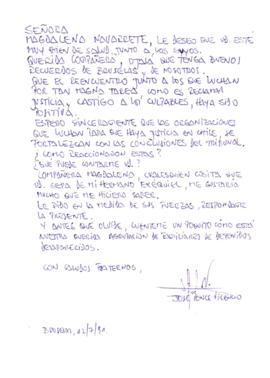 SEÑORA
MAGDALENA NAVARRETE, LE DESEO QUE UD. ESTE
MUY BIEN DE SALUD JUNTO A LOS SUYOS.
QUERIDA COMPAÑERA, OJALA QUE TENGA BUENOS
RECUERDOS DE BRUSELAS, DE NOSOTROS.
QUE EL REENCUENTRO JUNTO A LOS QUE LUCHAN
POR TAN MAGNA TAREA COMO ES RECLAMAR
JUSTICIA, CASTIGO A LOS CULPABLES, HAYA SIDO
POSITIVA.
ESPERO SINCERAMENTE QUE LAS ORGANIZACIONES
QUE LUCHAN PARA QUE HAYA JUSTICIA EN CHILE, SE
FORTALEZCAN CON LAS CONCLUSIONES DEL TRIBUNAL.
¿COMO REACCIONARON ESTAS?
¿QUE PUEDE CONTARME UD.?
COMPAÑERA MAGDALENA, CUALESQUIER COSITA QUE
UD. SEPA DE MI HERMANO EXEQUIEL, ME GUSTARIA
MUCHO QUE ME HICIERA SABER.
LE PIDO EN LA MEDIDA DE SUS FUERZAS, RESPONDAME
LA PRESENTE.
Y ANTES QUE OLVIDE, CUENTEME UN POQUITO CÓMO ESTÁ
NUESTRA QUERIDA AGRUPACION DE FAMILIARES DE DETENIDOS
DESAPARECIDOS.
CON SALUDOS FRATERNOS,
JOSÉ PONCE VICENCIO